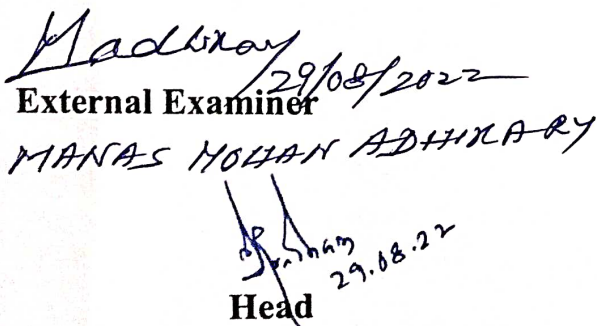 29/08/2022
External Examiner
MANAS MOHAN ADHIKARY
29.08.22
Head